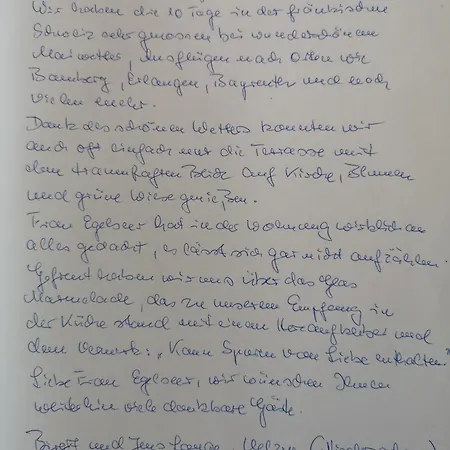 Wir haben die 10 Tage in der fränkischen
Schweiz sehr genossen bei wunderschönem
Maiwetter, Ausflügen nach Orten wie
Bamberg, Erlangen, Bayreuth und noch
vielen mehr.
Dank des schönen Wetters konnten wir
auch oft einfach nur die Terrasse mit
dem traumhaften Blick auf Kirche, Blumen
und grüne Wiese genießen.
Frau Egelseer hat in der Wohnung wirklich an
alles gedacht, es lässt sich gar nicht aufzählen.
Gefreut haben wir uns über das Glas
Marmelade, das zu unserem Empfang in
der Küche stand mit einem Herzaufkleber und
dem Vermerk: „Kann Spuren von Liebe enthalten"
Liebe Frau Egelseer, wir wünschen Ihnen
weiterhin viele dankbare Gäste.
und Jens